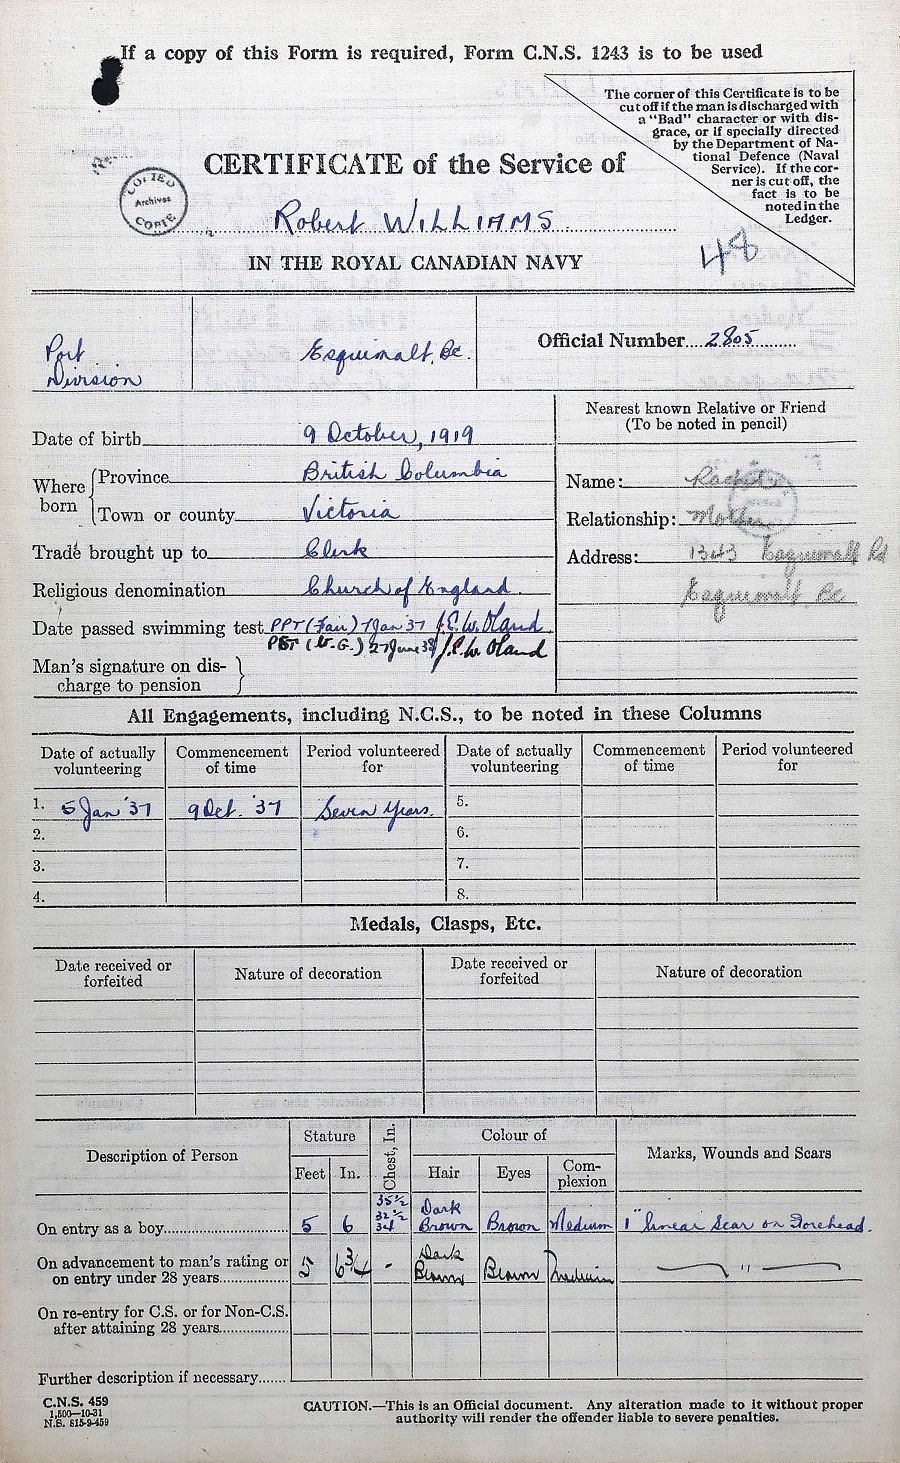 If a copy of this Form is required, Form C.N.S. 1243 is to be used
The corner of this Certificate is to be
cut off if the man is discharged with
a "Bad" character or with dis-
grace, or if specially directed
by the Department of Na-
tional Defence (Naval
Service). If the cor-
ner is cut off, the
fact is to be
noted in the
Ledger.
COPIED
Archives
COPIE
CERTIFICATE of the Service of
Robert WILLIAMS
IN THE ROYAL CANADIAN NAVY
48
Port
Division
Esquimalt, Bc.
Official Number 2805
Date of birth 9 October, 1919
Where born
Province British Columbia
Town or county Victoria
Trade brought up to Clerk
Religious denomination Church of England
Date passed swimming test PPT (Fair) 7 Jan 37 J.E.W. Oland
(V.G.) 27 June 38 J.E.W. Oland
Man's signature on dis-
charge to pension
Nearest known Relative or Friend
(To be noted in pencil)
Name:
Relationship: Mother
Address: 1343 Esquimalt Rd
Esquimalt Bc
All Engagements, including N.C.S., to be noted in these Columns
Date of actually volunteering Commencement of time Period volunteered for Date of actually volunteering Commencement of time Period volunteered for
1. 5 Jan '37 9 Oct. '37 Seven Years. 5.
2. 6.
3. 7.
4. 8.
Medals, Clasps, Etc.
Date received or forfeited Nature of decoration Date received or forfeited Nature of decoration
Description of Person Stature Chest, In. Colour of Marks, Wounds and Scars
Feet In. Hair Eyes Com-plexion
On entry as a boy 5 6 35½ 32½ 34 Dark Brown Brown Medium 1" linear Scar on Forehead.
On advancement to man's rating or
on entry under 28 years 5 6¾ - Dark Brown Brown Medium "
On re-entry for C.S. or for Non-C.S.
after attaining 28 years
Further description if necessary
C.N.S. 459
1,500—10-31
N.S. 815-9-459
CAUTION.—This is an Official document. Any alteration made to it without proper
authority will render the offender liable to severe penalties.